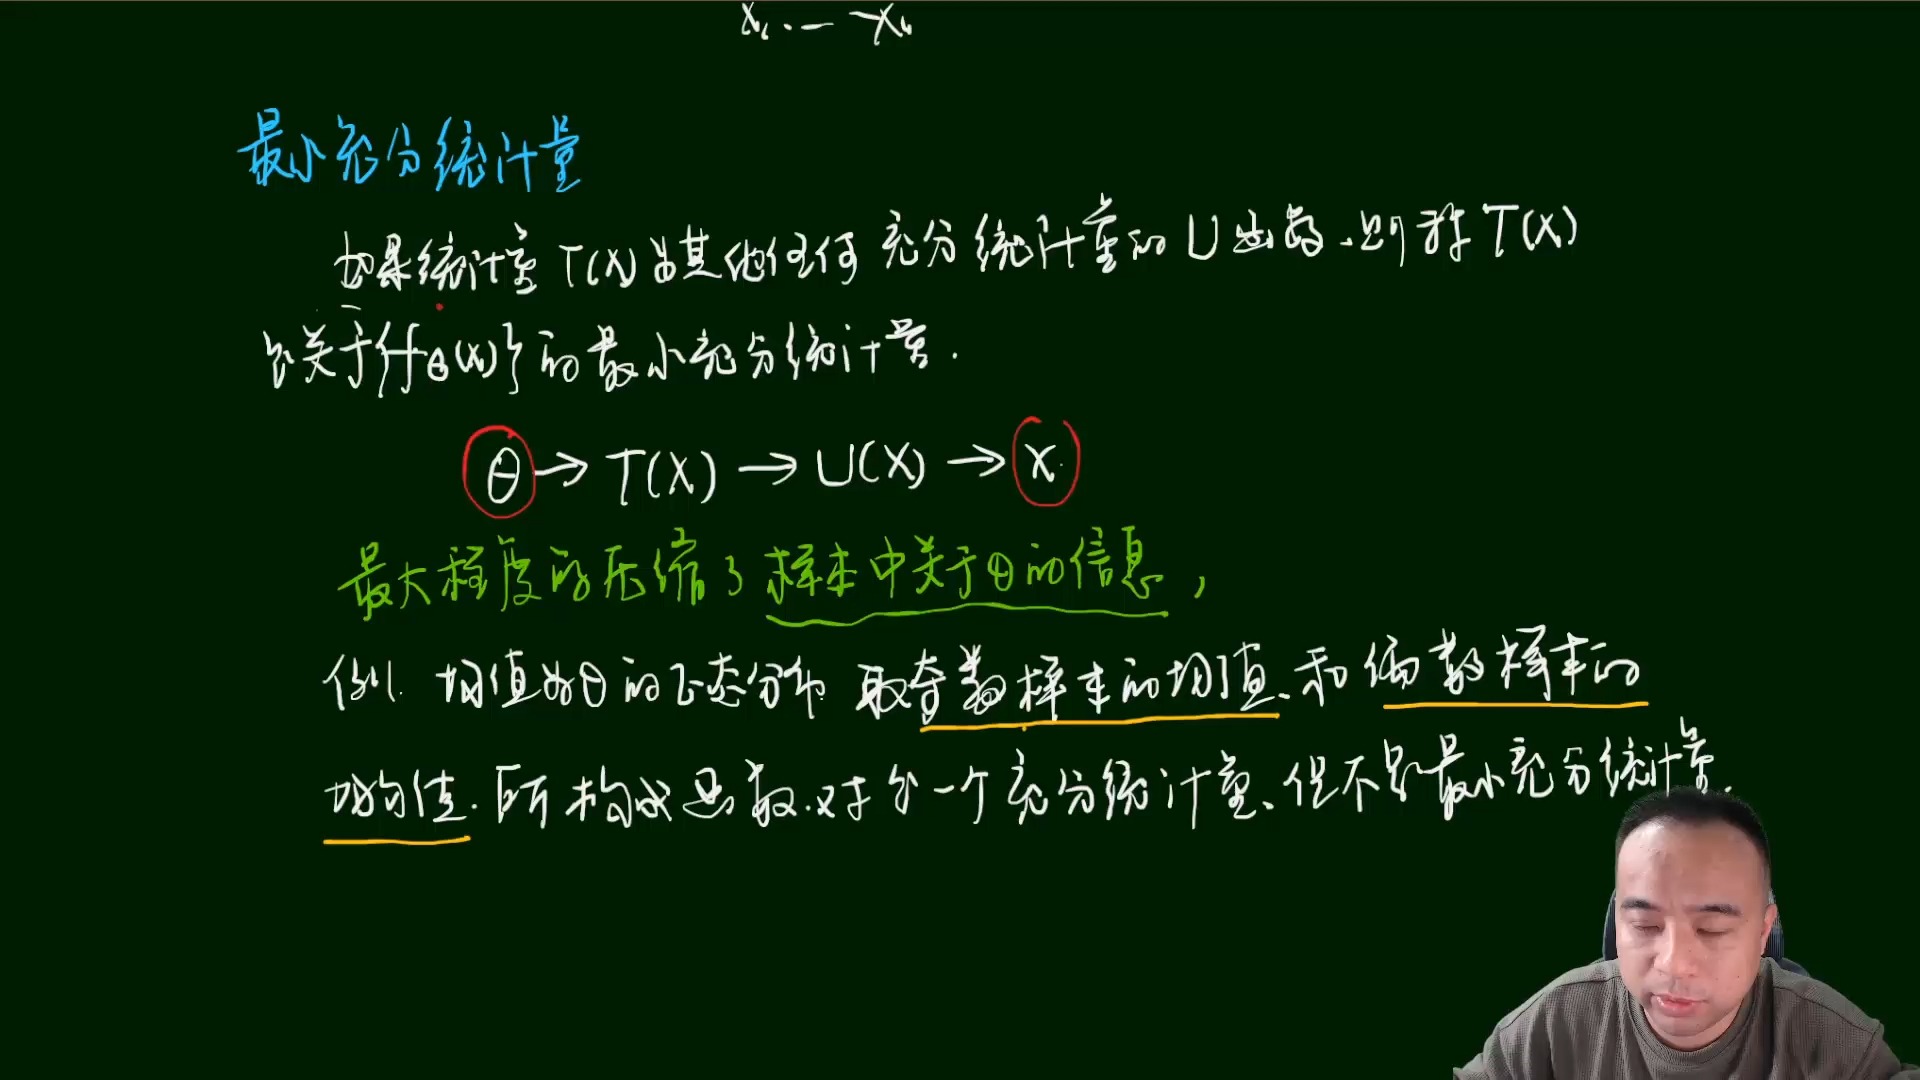 x₁.— —xₙ
最小充分统计量
如果统计量 T(X) 为其他任何充分统计量的 U 函数,则称 T(X)
是关于{fθ(x)}的最小充分统计量.
θ → T(X) → U(X) → X.
最大程度的压缩了样本中关于θ的信息,
例. 均值为θ的正态分布 取奇数样本的均值、和偶数样本的
均值. 所构成函数.对 一个充分统计量、但不是最小充分统计量.